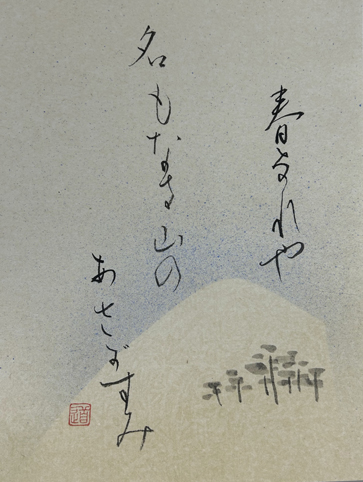 春なれや
名もなき山の
あさがすみ
道